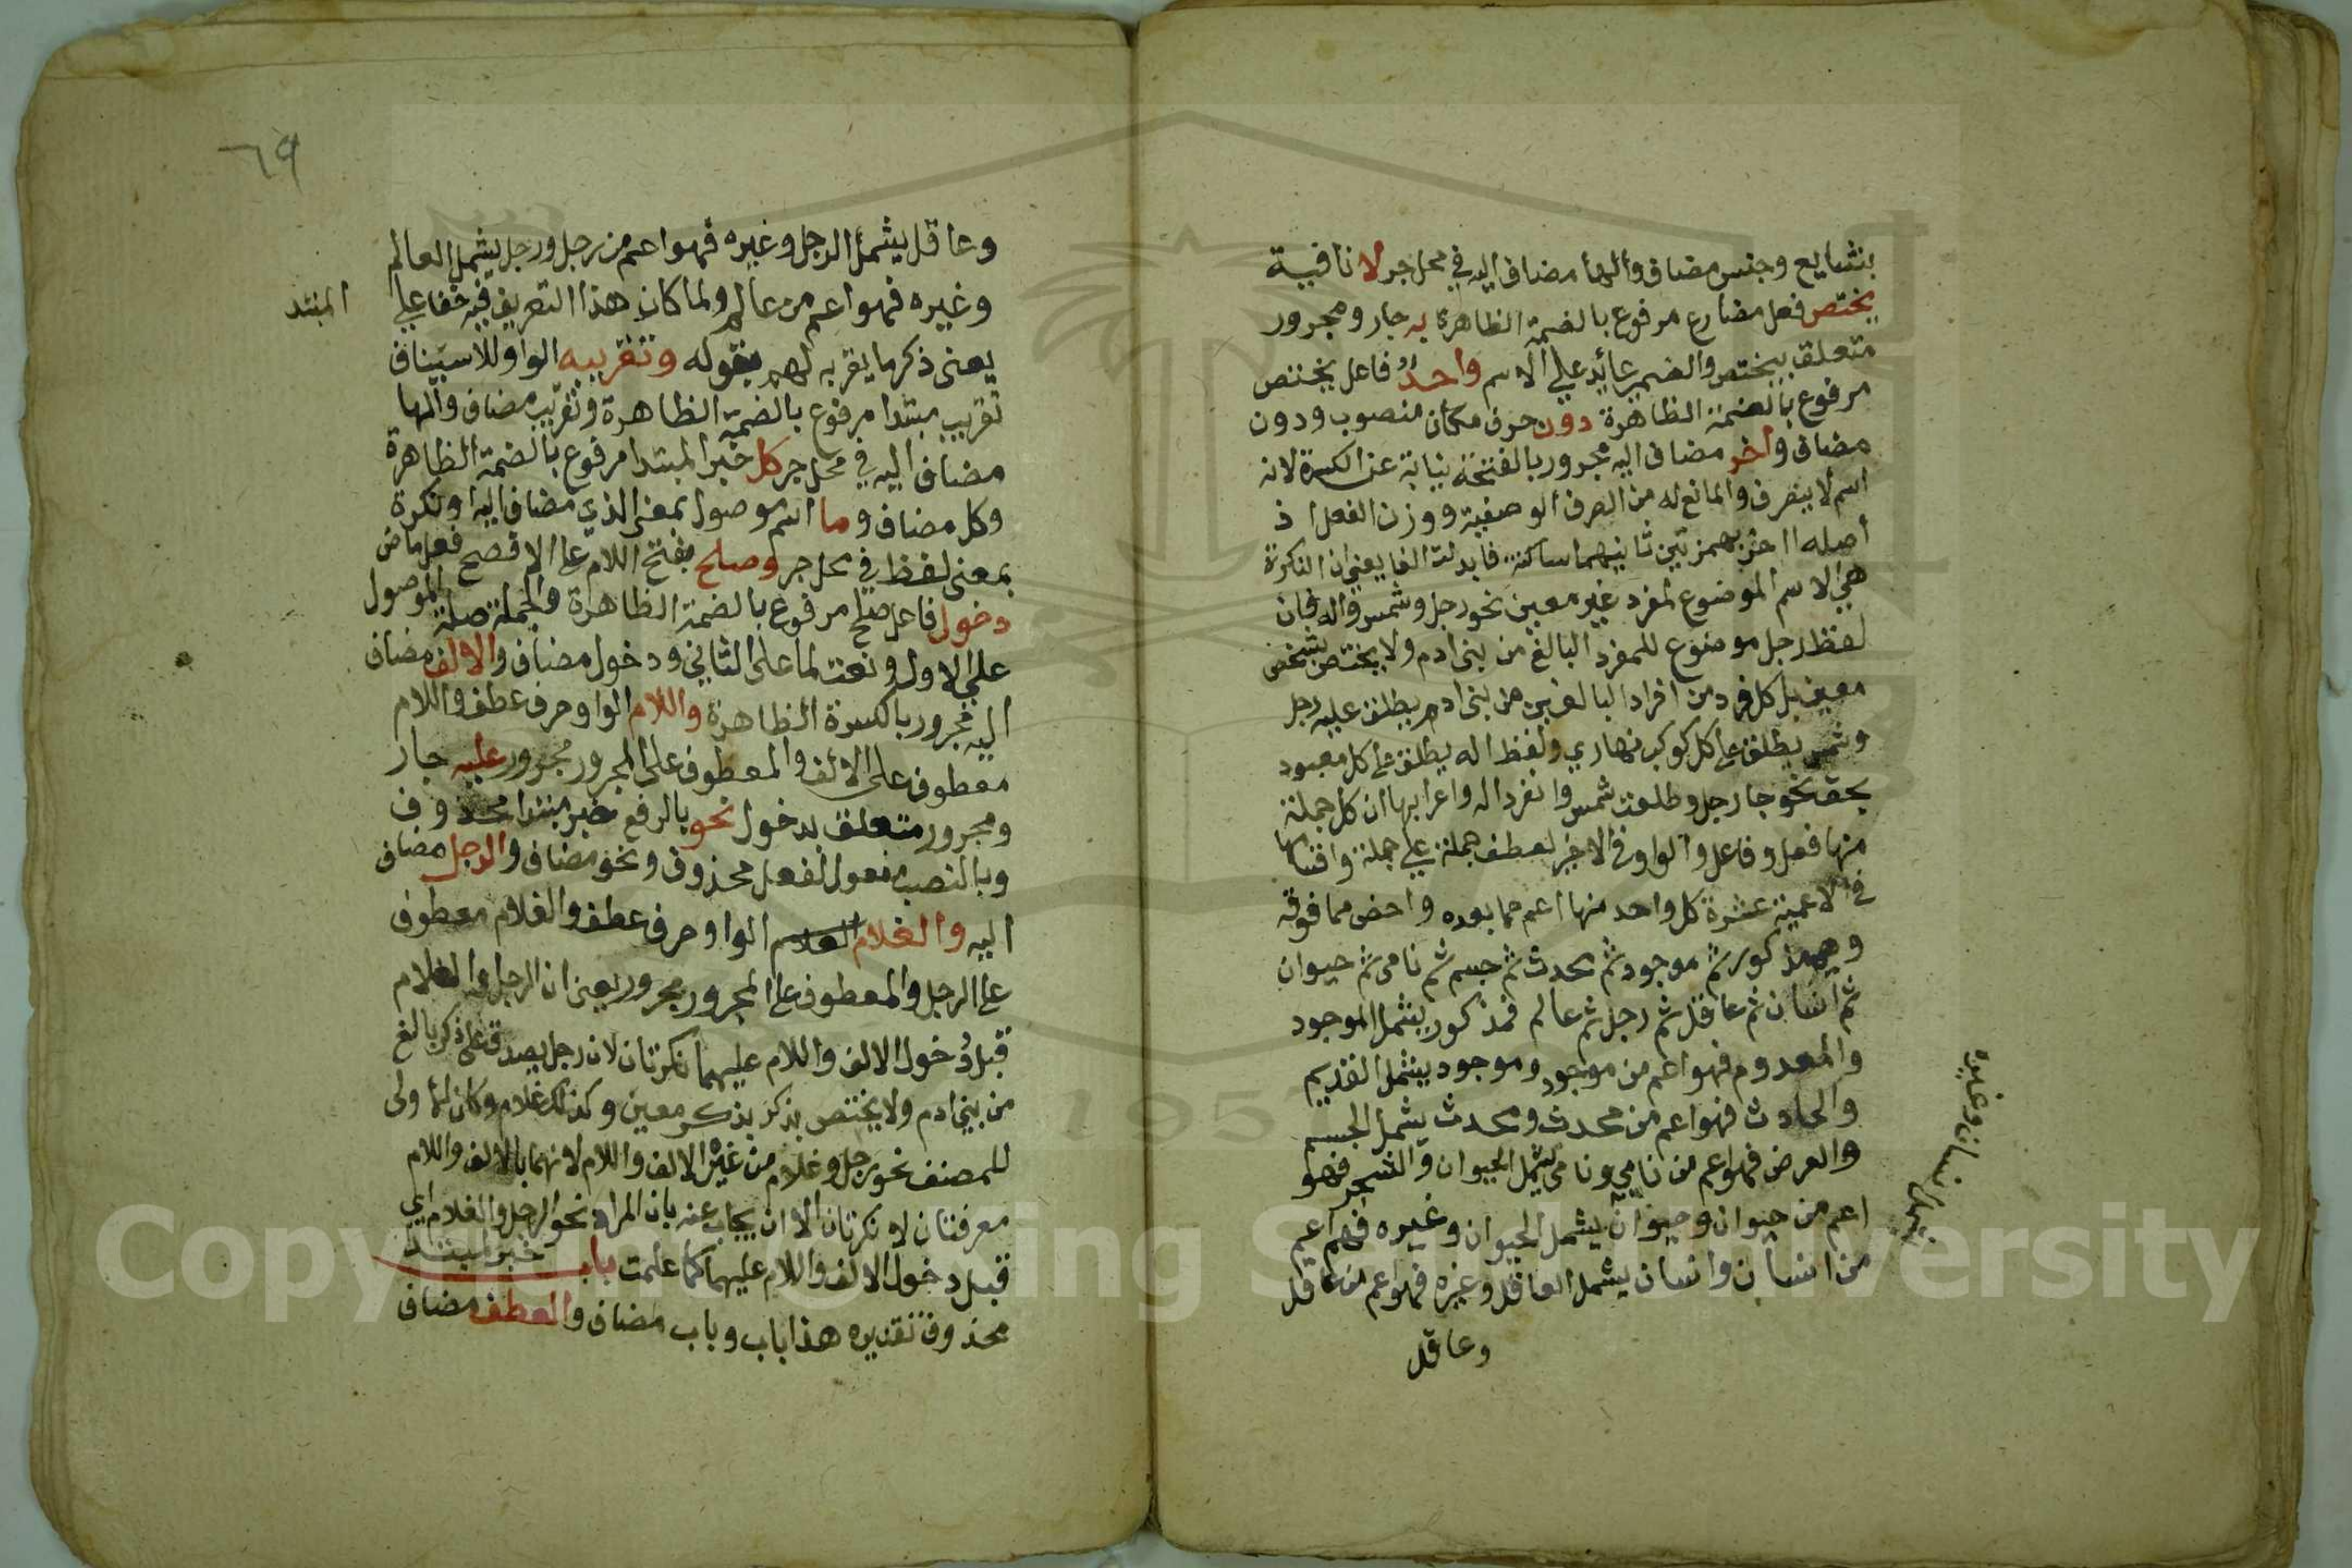 بنشايع وجنس مضاف والهأ مضاف اليه في محل جر لا نافية
يختص فعل مضارع مرفوع بالضمة الظاهرة به جار ومجرور
متعلق بيختص والضمير عائد علي الاسم واحدٌ فاعل يختص
مرفوع بالضمة الظاهرة دون حرف مكان منصوب ودون
مضاف وآخر مضاف اليه مجرور بالفتحة نيابة عن الكسرة لانه
اسم لا ينصرف والمانع له من الصرف الوصفية ووزن الفعل اذ
أصله ااخر بهمزتين ثانيهما ساكنة فابدلت الفا يعني ان النكرة
هي الاسم الموضوع لمفرد غير معين نحو رجل وشمس واله فان
لفظ رجل موضوع للمفرد البالغ من بني ادم ولا يختص بشخص
معين بل كل فرد من افراد البالغين من بني ادم يطلق عليه رجل
وشمس يطلق على كل كوكب نهاري ولفظ اله يطلق على كل معبود
بحق نحو جا رجل وطلعت شمس وانفرد اله واعرابها ان كل جملة
منها فعل وفاعل والواو في الاخير لعطف جملة علي جملة واقسامها
في الاعمية عشرة كل واحد منها اعم مما بعده واخص مما فوقه
وهي مذكور ثم موجود ثم محدث ثم جسم ثم نامي ثم حيوان
ثم انسان ثم عاقل ثم رجل ثم عالم فمذكور يشمل الموجود
والمعدوم فهو اعم من موجود وموجود يشمل القديم
والحادث فهو اعم من محدث ومحدث يشمل الجسم
والعرض فهو اعم من نامي ونامي يشمل الحيوان والشجر فهو
اعم من حيوان وحيوان يشمل الحيوان وغيره فهم اعم
من انسان وانسان يشمل العاقل وغيره فهو اعم من عاقل
وعاقل
انسان وغيره
٦٩
وعاقل يشمل الرجل وغيره فهو اعم من رجل ورجل يشمل العالم
وغيره فهو اعم من عالم ولما كان هذا التعريف فيه خفا علي
المبتد
يعني ذكر ما يقربه لهم بقوله وتقريبه الواو للاسيناف
تقريب مبتدا مرفوع بالضمة الظاهرة وتقريب مضاف والها
مضاف اليه في محل جر كل خبر المبتدا مرفوع بالضمة الظاهرة
وكل مضاف وما اسم موصول بمعنى الذي مضاف اليه او نكرة
بمعنى لفظ في محل جر وصلح بفتح اللام على الافصح فعل ماض
دخول فاعل صلح مرفوع بالضمة الظاهرة والجملة صلة الموصول
علي الاول ونعت لما على الثاني ودخول مضاف والالف مضاف
اليه مجرور بالكسرة الظاهرة واللام الواو حرف عطف واللام
معطوف على الالف والمعطوف على المجرور مجرور عليه جار
ومجرور متعلق بدخول نحو بالرفع خبر مبتدا محذوف
وبالنصب مفعول لفعل محذوف ونحو مضاف والرجل مضاف
اليه والغلام الواو حرف عطف والغلام معطوف
على الرجل والمعطوف على المجرور مجرور يعني ان الرجل والغلام
قبل دُخول الالف واللام عليهما نكرتان لان رجل يصدق على ذكر بالغ
من بني ادم ولا يختص بذكر بذكر معين وكذلك غلام وكان الاولى
للمصنف نحو رجل وغلام من غير الالف واللام لانهما بالالف واللام
معرفتان لا نكرتان الا ان يجاب عنه بان المراد نحو الرجل والغلام اي
قبل دخول الالف واللام عليهما كما علمت باب خبر لمبتدا
محذوف تقديره هذا باب وباب مضاف والعطف مضاف
Copyright King Saud University
1957